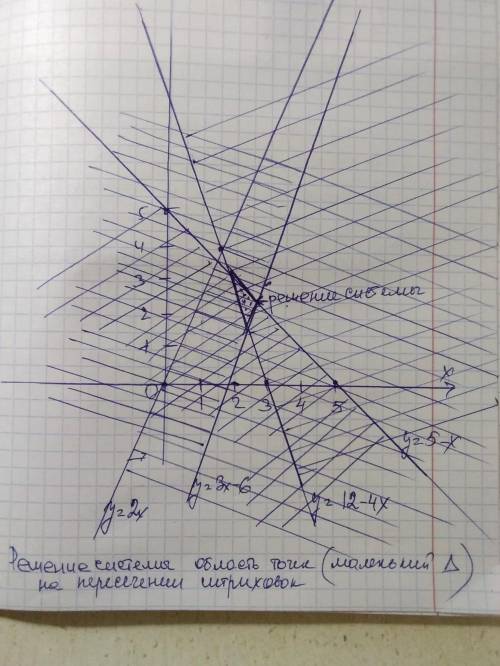 5
4
3
2
1
решение системы
0
1
2
3
4
5
x
y=5-x
y=2x
y=3x-6
y=12-4x
Решение система область точк (маленький Δ)
на пересечении штриховок